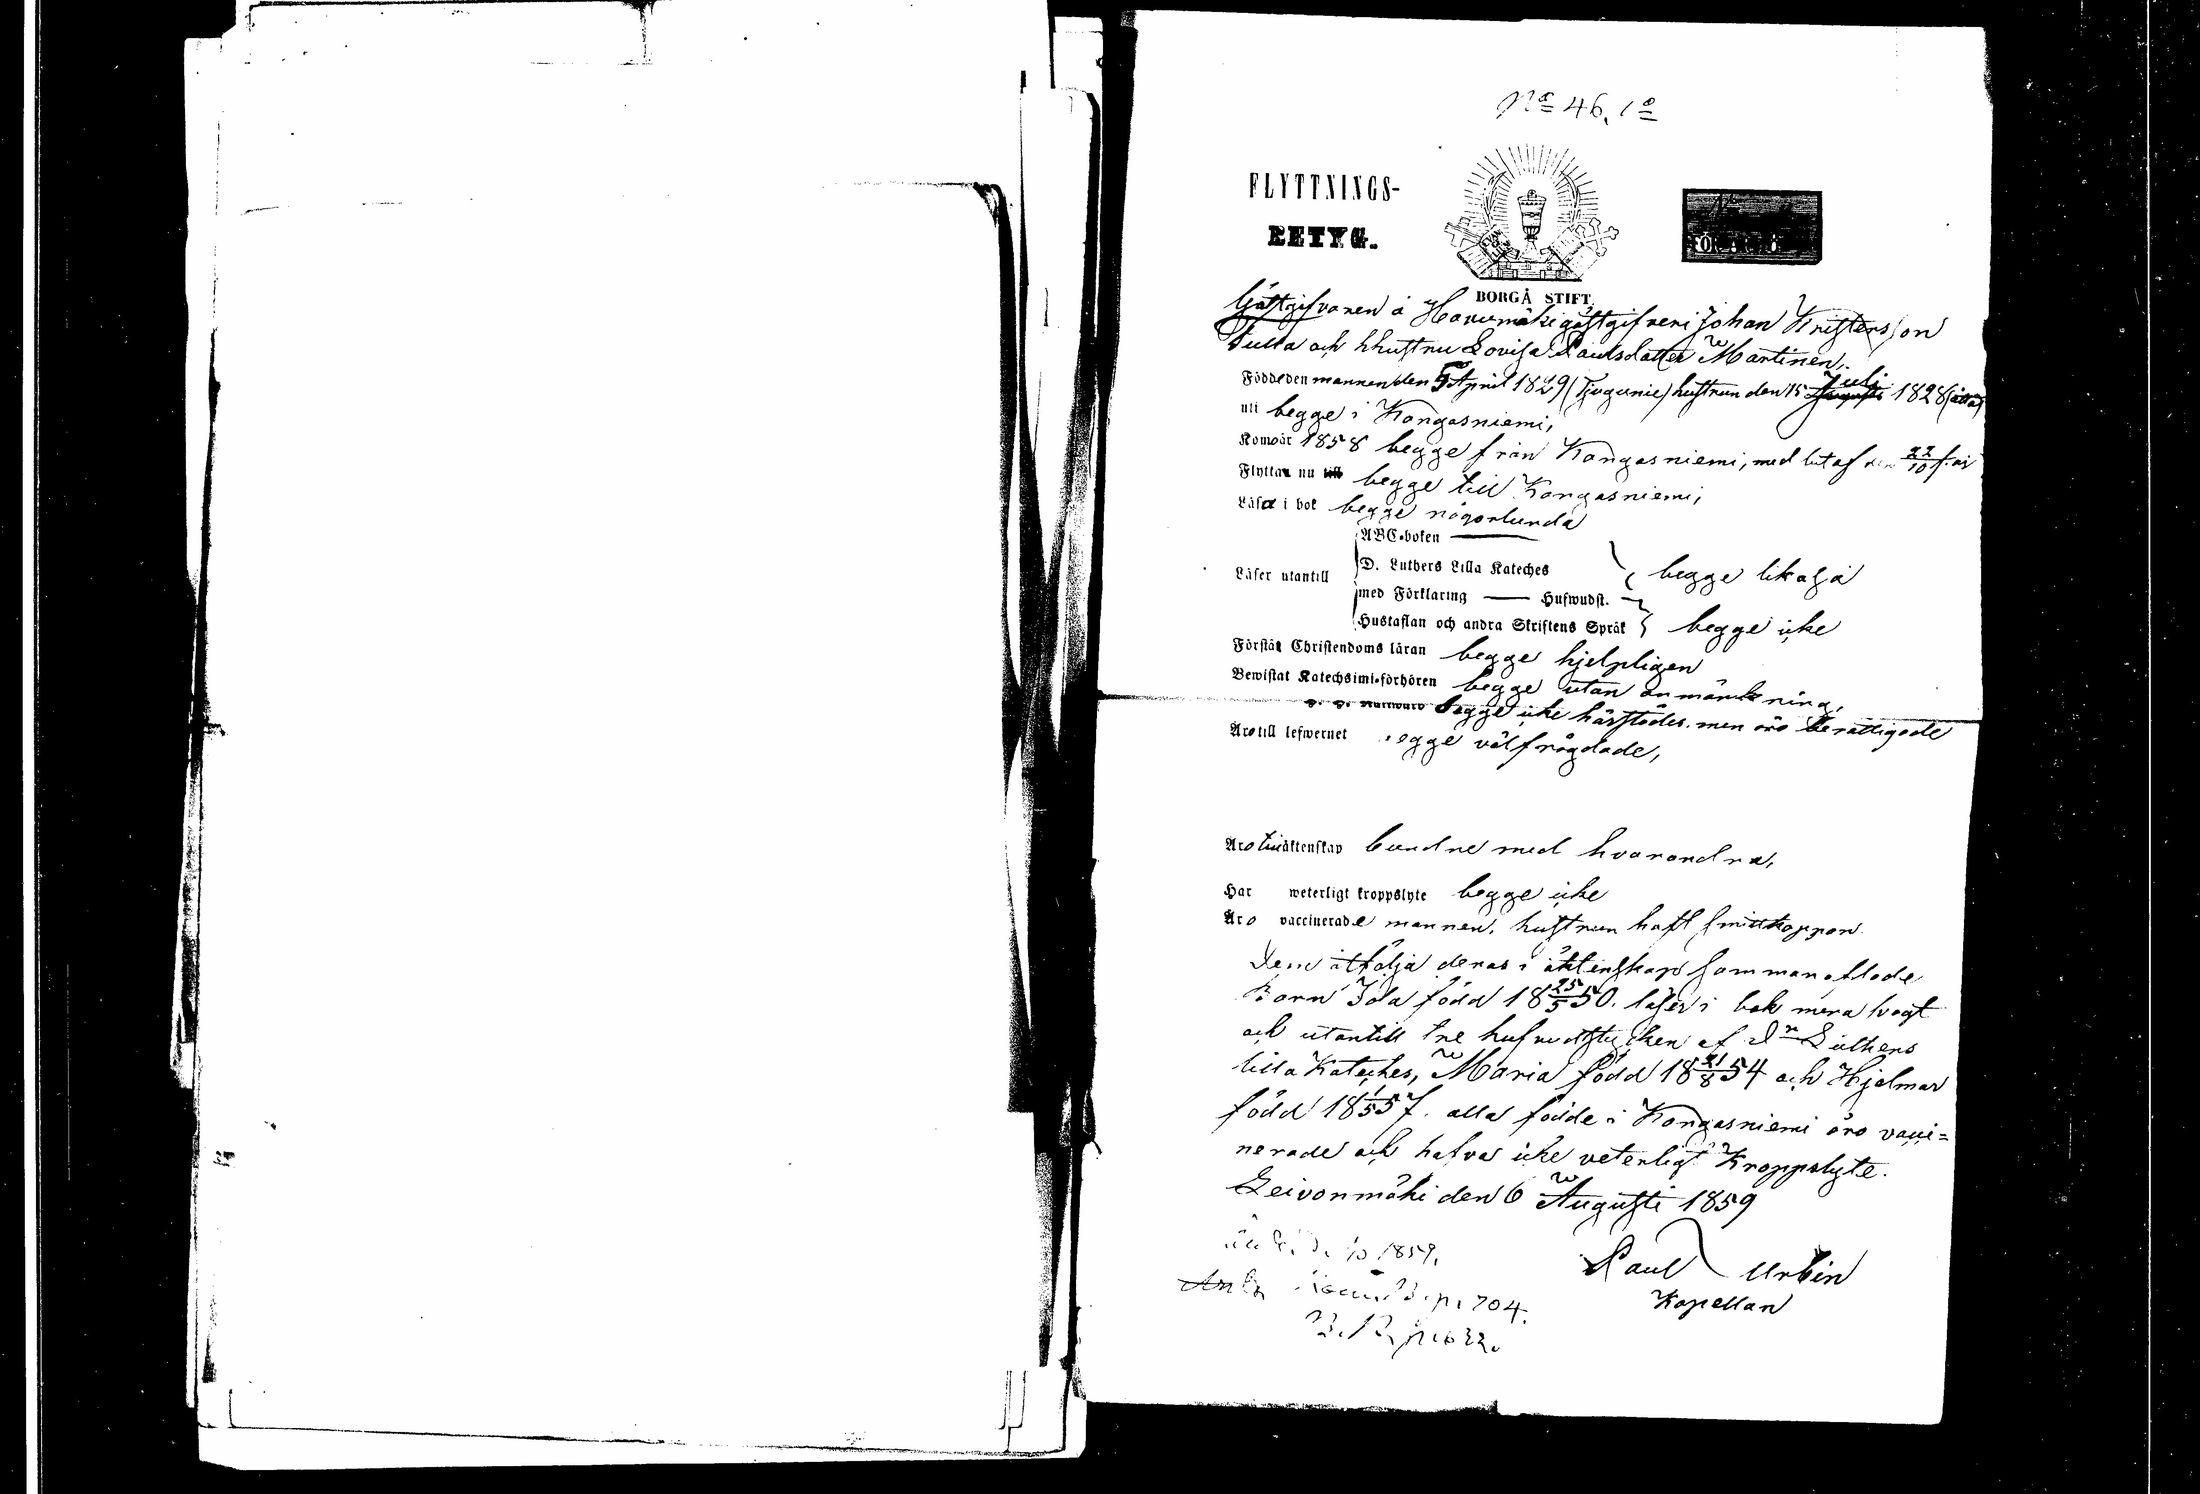 No 46. 1o
FLYTTNINGS-
BETYG.
BORGÅ STIFT.
Gästgifvaren å Havumäki gästgifveri Johan Kristersson
och hustru Lovisa Paulsdotter Martinen,
Föddeden mannen den 5 April 1829 (Tjugunie) hustrun den 15 Juli 1828 (åtta)
uti begge i Kangasniemi,
Kom år 1858 begge från Kangasniemi, med bet af den 22/10 s. år
Flytta nu till begge till Kangasniemi,
Läsa i bok begge någorlunda
ABC-boken
D. Luthers Lilla Kateches
Läser utantill begge likaså
med Förklaring — Hufwudst.
Hustaflan och andra Skriftens Språk begge icke
Förstå Christendoms läran begge hjelpligen
Bewistat Katechsimi-förhören begge utan anmärkning,
begge icke härstädes. men äro berättigade
Äro till lefwernet begge välfrägdade,
Äro till äktenskap bundne med hvarandra,
Har weterligt kroppslyte begge icke
Äro vaccinerade mannen, hustrun haft smittkoppor.
Dem åtfölja deras i äktenskap sammanaflade
Barn Ida född 18 25/5 50. läser i bok mera trögt
och utantill tre hufvudstycken af Dr Luthers
lilla Kateches, Maria född 18 21/8 54 och Hjalmar
född 18 1/5 57. alla födde i Kangasniemi äro vacci=
nerade och hafva icke veterligt Kroppslyte.
Leivonmäki den 6 Augusti 1859
1859.
Paul Urbin
p. 704.
Kapellan